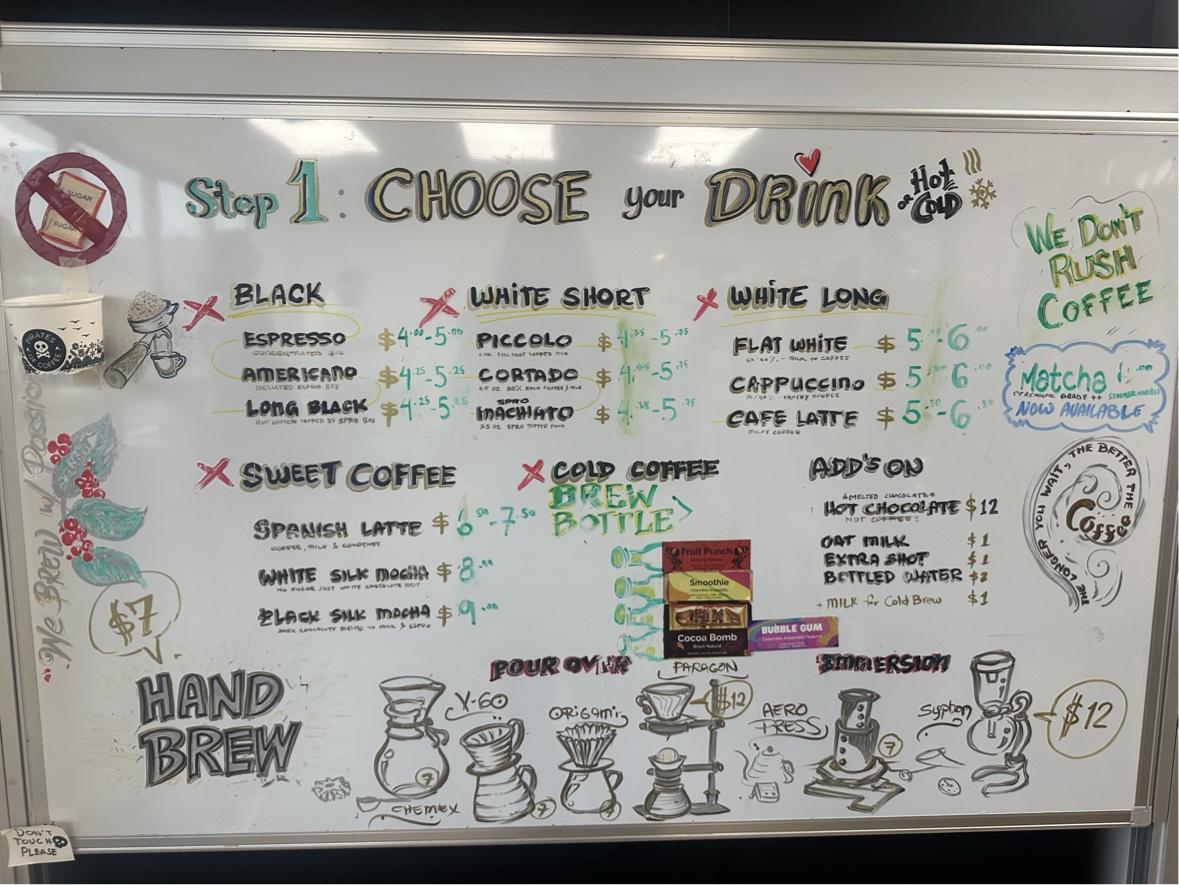 Step 1: CHOOSE your DRINK or Hot COLD
SUGAR
SUGAR
WE DON'T
RUSH
COFFEE
PIRATES
COFFEE
BLACK
ESPRESSO $4.00-5.00
CONCENTRATED 2oz
AMERICANO $4.25-5.25
DILUTED ESPRO 8oz
LONG BLACK $4.25-5.25
HOT WATER TOPPED BY SPRO 8oz
WHITE SHORT
PICCOLO $4.75-5.75
CORTADO $4.75-5.75
SPRO
MACHIATO $4.75-5.75
WHITE LONG
FLAT WHITE $5.00-6.00
CAPPUCCINO $5.00-6.00
CAFE LATTE $5.50-6.50
MILKY COFFEE
Matcha
CEREMONIAL GRADE ++
NOW AVAILABLE
SWEET COFFEE
SPANISH LATTE $6.50-7.50
WHITE SILK MOCHA $8.00
BLACK SILK MOCHA $9.00
COLD COFFEE
BREW
BOTTLE
Fruit Punch
Smoothie
FIX
Cocoa Bomb
BUBBLE GUM
ADD'S ON
MELTED CHOCOLATE
HOT CHOCOLATE $12
NOT COFFEE!!
OAT MILK $1
EXTRA SHOT $1
BETTLED WATER $2
+ MILK for Cold Brew $1
THE LONGER YOU WAIT, THE BETTER THE
Coffee
"We BREW w/ Passion"
$7
HAND
BREW
POUR OVER
PARAGON
$12
IMMERSION
V-60
ORIGAMI
AERO
PRESS
Syphon
$12
7
7
7
7
CHEMEX
DON'T
TOUCH
PLEASE